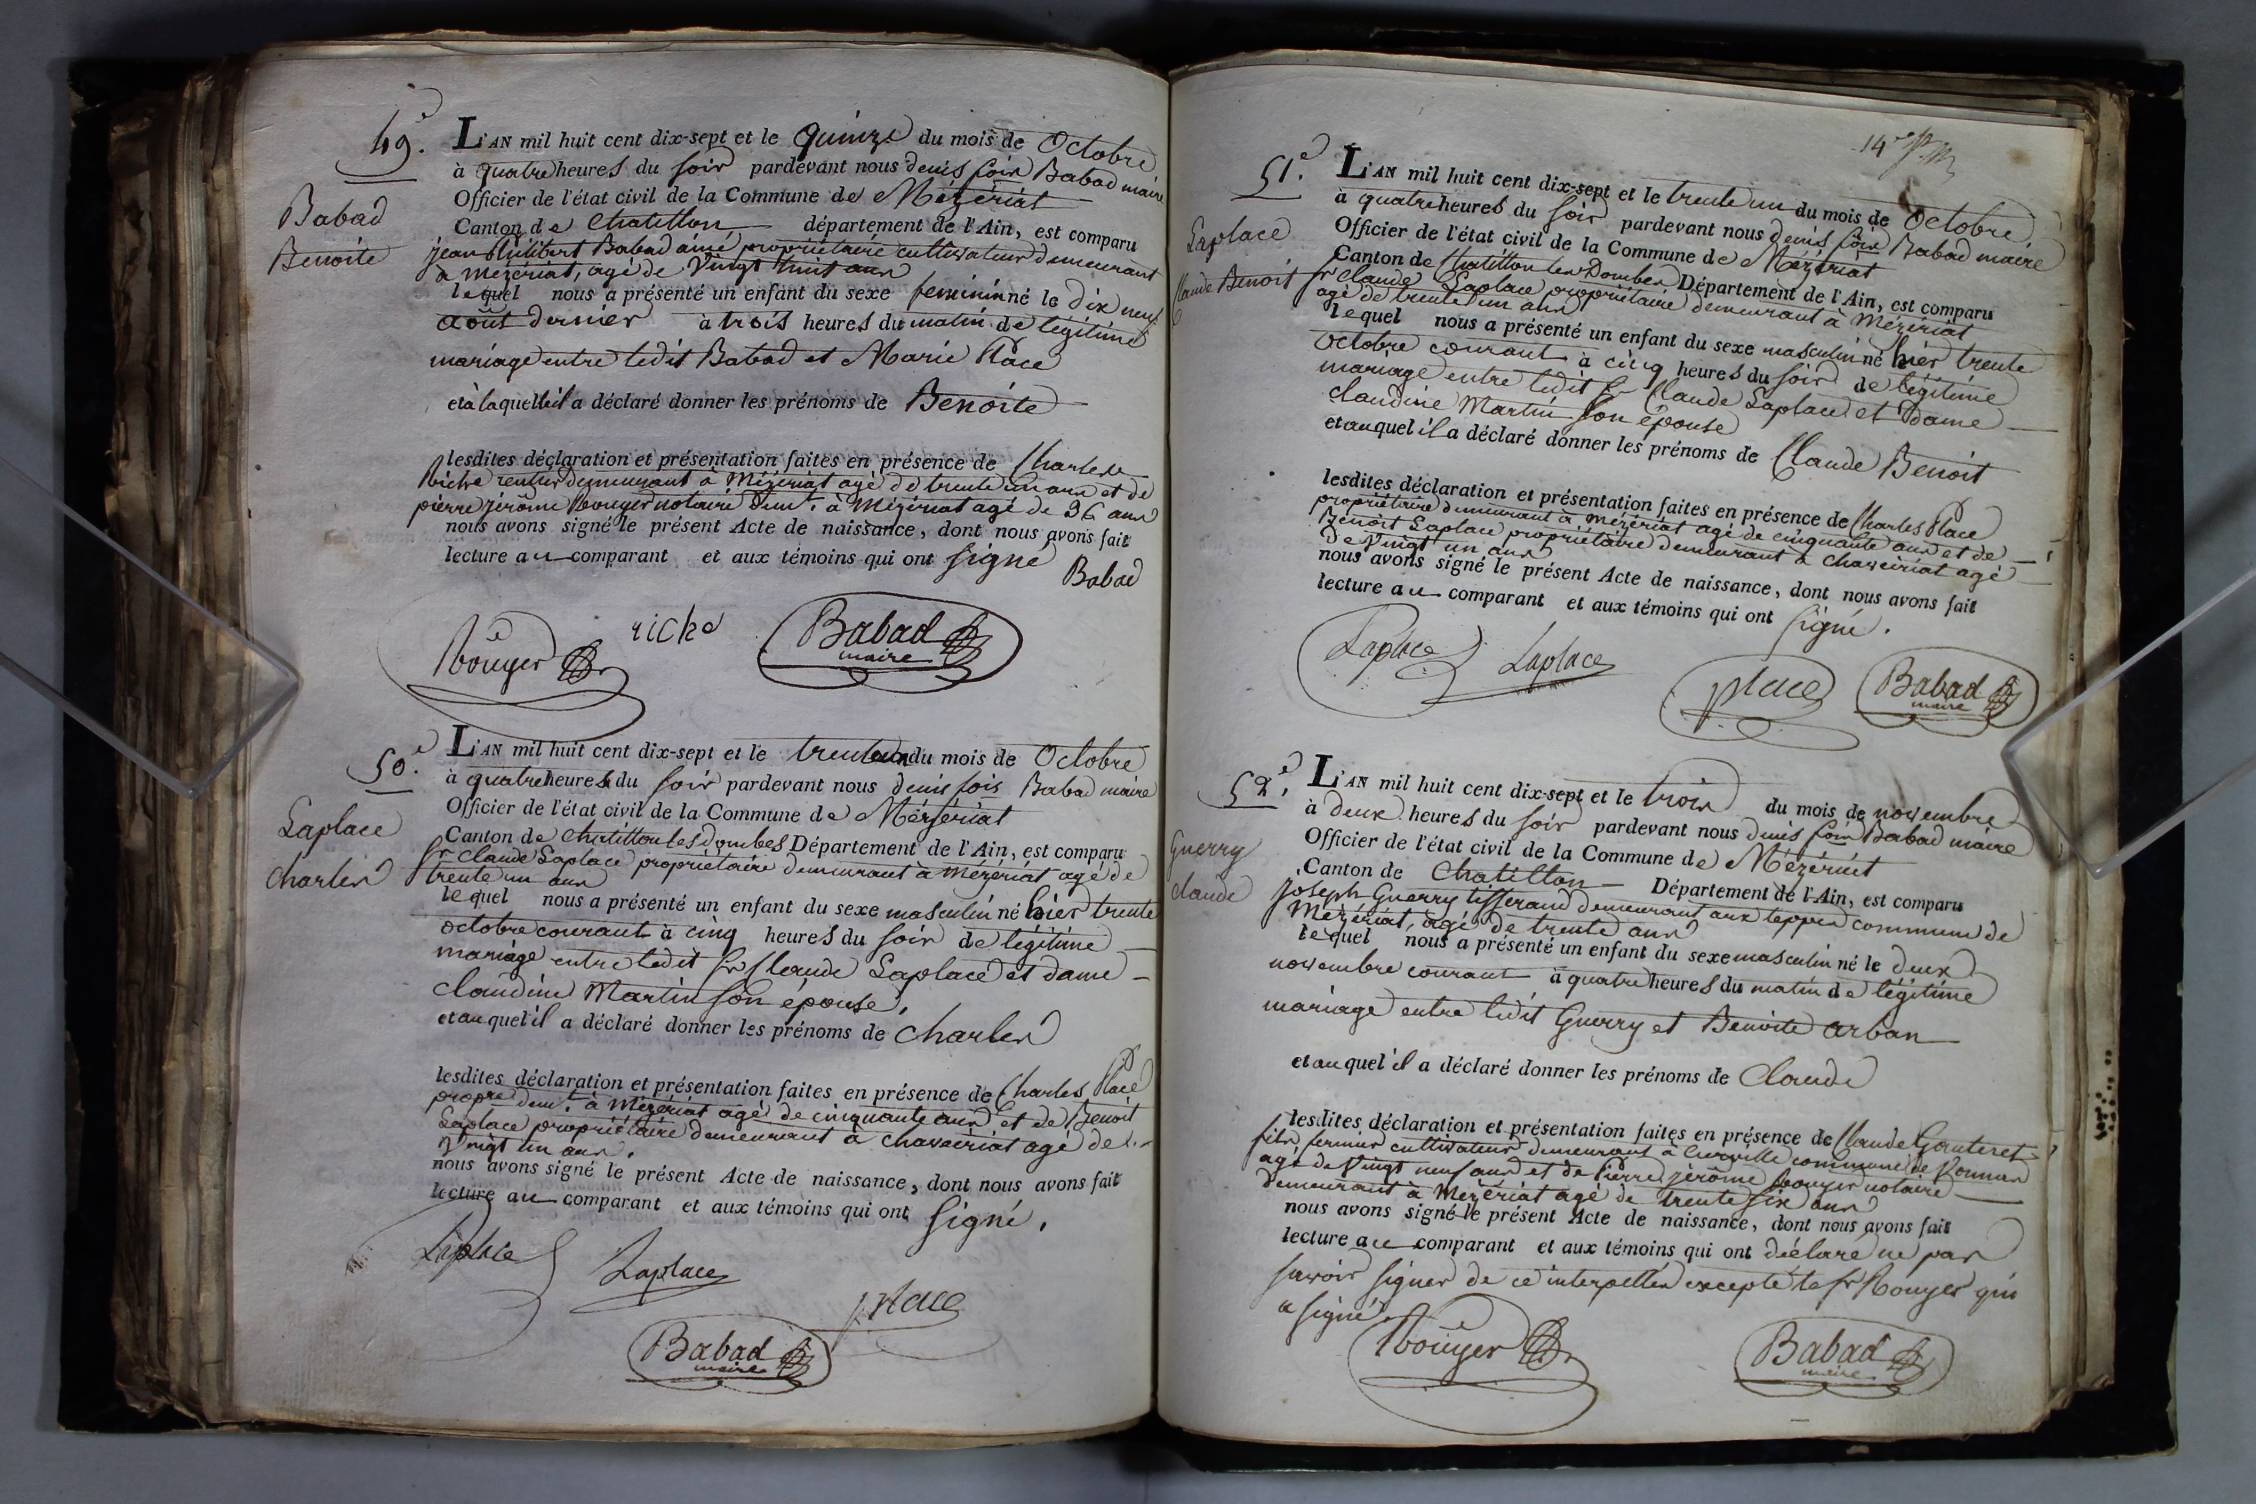 49.e
Babad
Benoite
L'AN mil huit cent dix-sept et le quinze du mois de Octobre
à quatre heures du soir pardevant nous denis foix Babad maire
Officier de l'état civil de la Commune de Mézériat
Canton de Chatillon département de l'Ain, est comparu
jean Philibert Babad ainé, propriétaire cultivateur demeurant
à Mézériat, agé de Vingt huit ans
lequel nous a présenté un enfant du sexe feminin né le dix neuf
août dernier à trois heures du matin de légitime
mariage entre ledit Babad et Marie Place
et à laquelle il a déclaré donner les prénoms de Benoite
lesdites déclaration et présentation faites en présence de Charles
Riche rentier demeurant à Mézériat agé de trente un ans et de
pierre jérôme Rouyer notaire demt. à Mézériat agé de 36 ans
nous avons signé le présent Acte de naissance, dont nous avons fait
lecture au comparant et aux témoins qui ont signé
Babad
Rouyer riche Babad
maire
50.e
Laplace
Charles
L'AN mil huit cent dix-sept et le trente un du mois de Octobre
à quatre heures du soir pardevant nous denis fois Babad maire
Officier de l'état civil de la Commune de Mézériat
Canton de Chatillon les dombes Département de l'Ain, est comparu
sr. Claude Laplace propriétaire demeurant à Mézériat agé de
trente un ans
lequel nous a présenté un enfant du sexe masculin né hier trente
octobre courant à cinq heures du soir de légitime
mariage entre ledit sr Claude Laplace et dame
Claudine Martin son épouse,
et auquel il a déclaré donner les prénoms de Charles
lesdites déclaration et présentation faites en présence de Charles Place
propre demt. à Mézériat agé de cinquante ans et de Benoit
Laplace propriétaire demeurant à Chaveiriat agé de
Vingt un ans.
nous avons signé le présent Acte de naissance, dont nous avons fait
lecture au comparant et aux témoins qui ont signé.
Laplace Laplace place
Babad
maire
14e
51.e
Laplace
Claude Benoit
L'AN mil huit cent dix-sept et le trente un du mois de Octobre
à quatre heures du soir pardevant nous denis foix Babad maire
Officier de l'état civil de la Commune de Mézériat
Canton de Chatillon les Dombes Département de l'Ain, est comparu
sr Claude Laplace propriétaire demeurant à Mézériat
agé de trente un ans
lequel nous a présenté un enfant du sexe masculin né hier trente
octobre courant à cinq heures du soir de légitime
mariage entre ledit sr Claude Laplace et Dame
Claudine Martin son épouse
et auquel il a déclaré donner les prénoms de Claude Benoit
lesdites déclaration et présentation faites en présence de Charles Place
propriétaire demeurant à Mézériat agé de cinquante ans et de
Benoit Laplace propriétaire demeurant à Chaveiriat agé
de Vingt un ans
nous avons signé le présent Acte de naissance, dont nous avons fait
lecture au comparant et aux témoins qui ont signé.
Laplace Laplace place Babad
maire
52.e
Guerry
Claude
L'AN mil huit cent dix-sept et le trois du mois de novembre
à deux heures du soir pardevant nous denis foix Babad maire
Officier de l'état civil de la Commune de Mézériat
Canton de Chatillon Département de l'Ain, est comparu
joseph Guerry tisserand demeurant aux teppes commune de
Mézériat, agé de trente ans
lequel nous a présenté un enfant du sexe masculin né le deux
novembre courant à quatre heures du matin de légitime
mariage entre ledit Guerry et Benoite arban
et auquel il a déclaré donner les prénoms de Claude
lesdites déclaration et présentation faites en présence de Claude Gauteret
fils fermier cultivateur demeurant à commune de Vonnas
agé de Vingt neuf ans et de Pierre jérôme Rouyer notaire
demeurant à Mézériat agé de trente six ans
nous avons signé le présent Acte de naissance, dont nous avons fait
lecture au comparant et aux témoins qui ont déclaré ne pas
savoir signer de ce interpellés excepté le sr Rouyer qui
a signé.
Rouyer Babad
maire